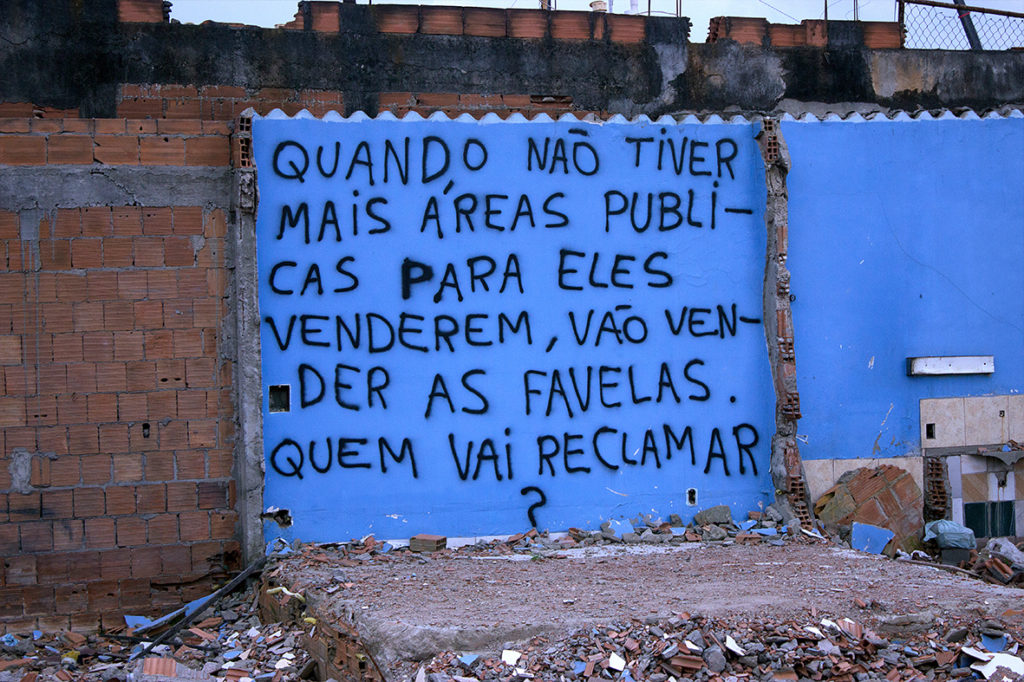 QUANDO NÃO TIVER
MAIS ÁREAS PUBLI-
CAS PARA ELES
VENDEREM, VÃO VEN-
DER AS FAVELAS.
QUEM VAI RECLAMAR
?